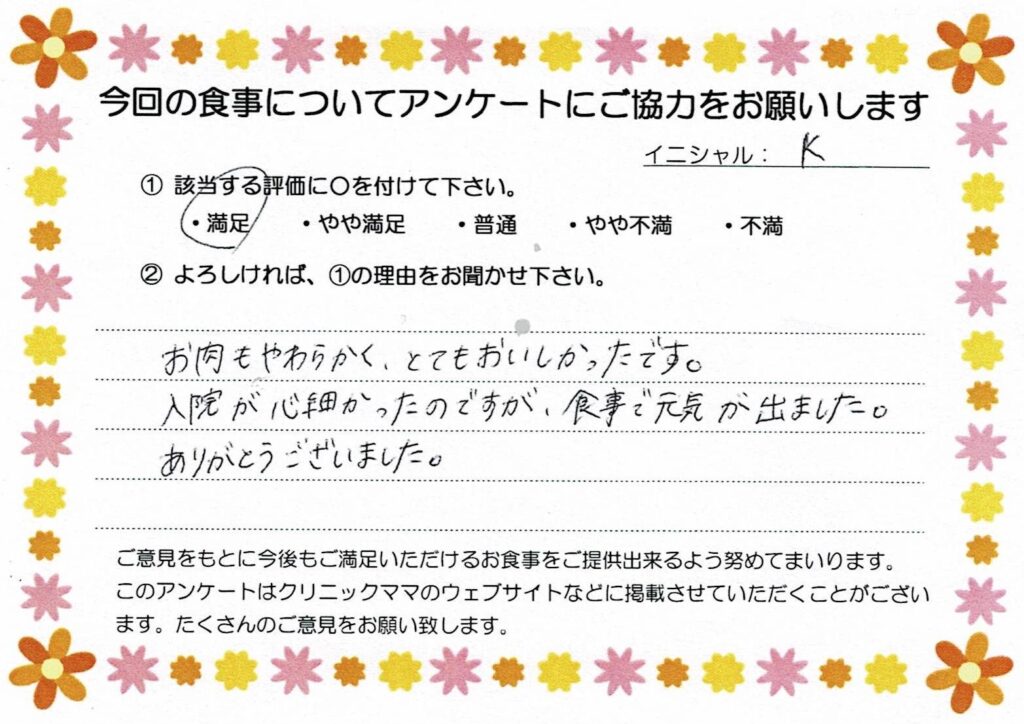 今回の食事についてアンケートにご協力をお願いします
イニシャル： K
① 該当する評価に〇を付けて下さい。
・満足 ・やや満足 ・普通 ・やや不満 ・不満
② よろしければ、①の理由をお聞かせ下さい。
お肉もやわらかく、とてもおいしかったです。
入院が心細かったのですが、食事で元気が出ました。
ありがとうございました。
ご意見をもとに今後もご満足いただけるお食事をご提供出来るよう努めてまいります。
このアンケートはクリニックママのウェブサイトなどに掲載させていただくことがござい
ます。たくさんのご意見をお願い致します。